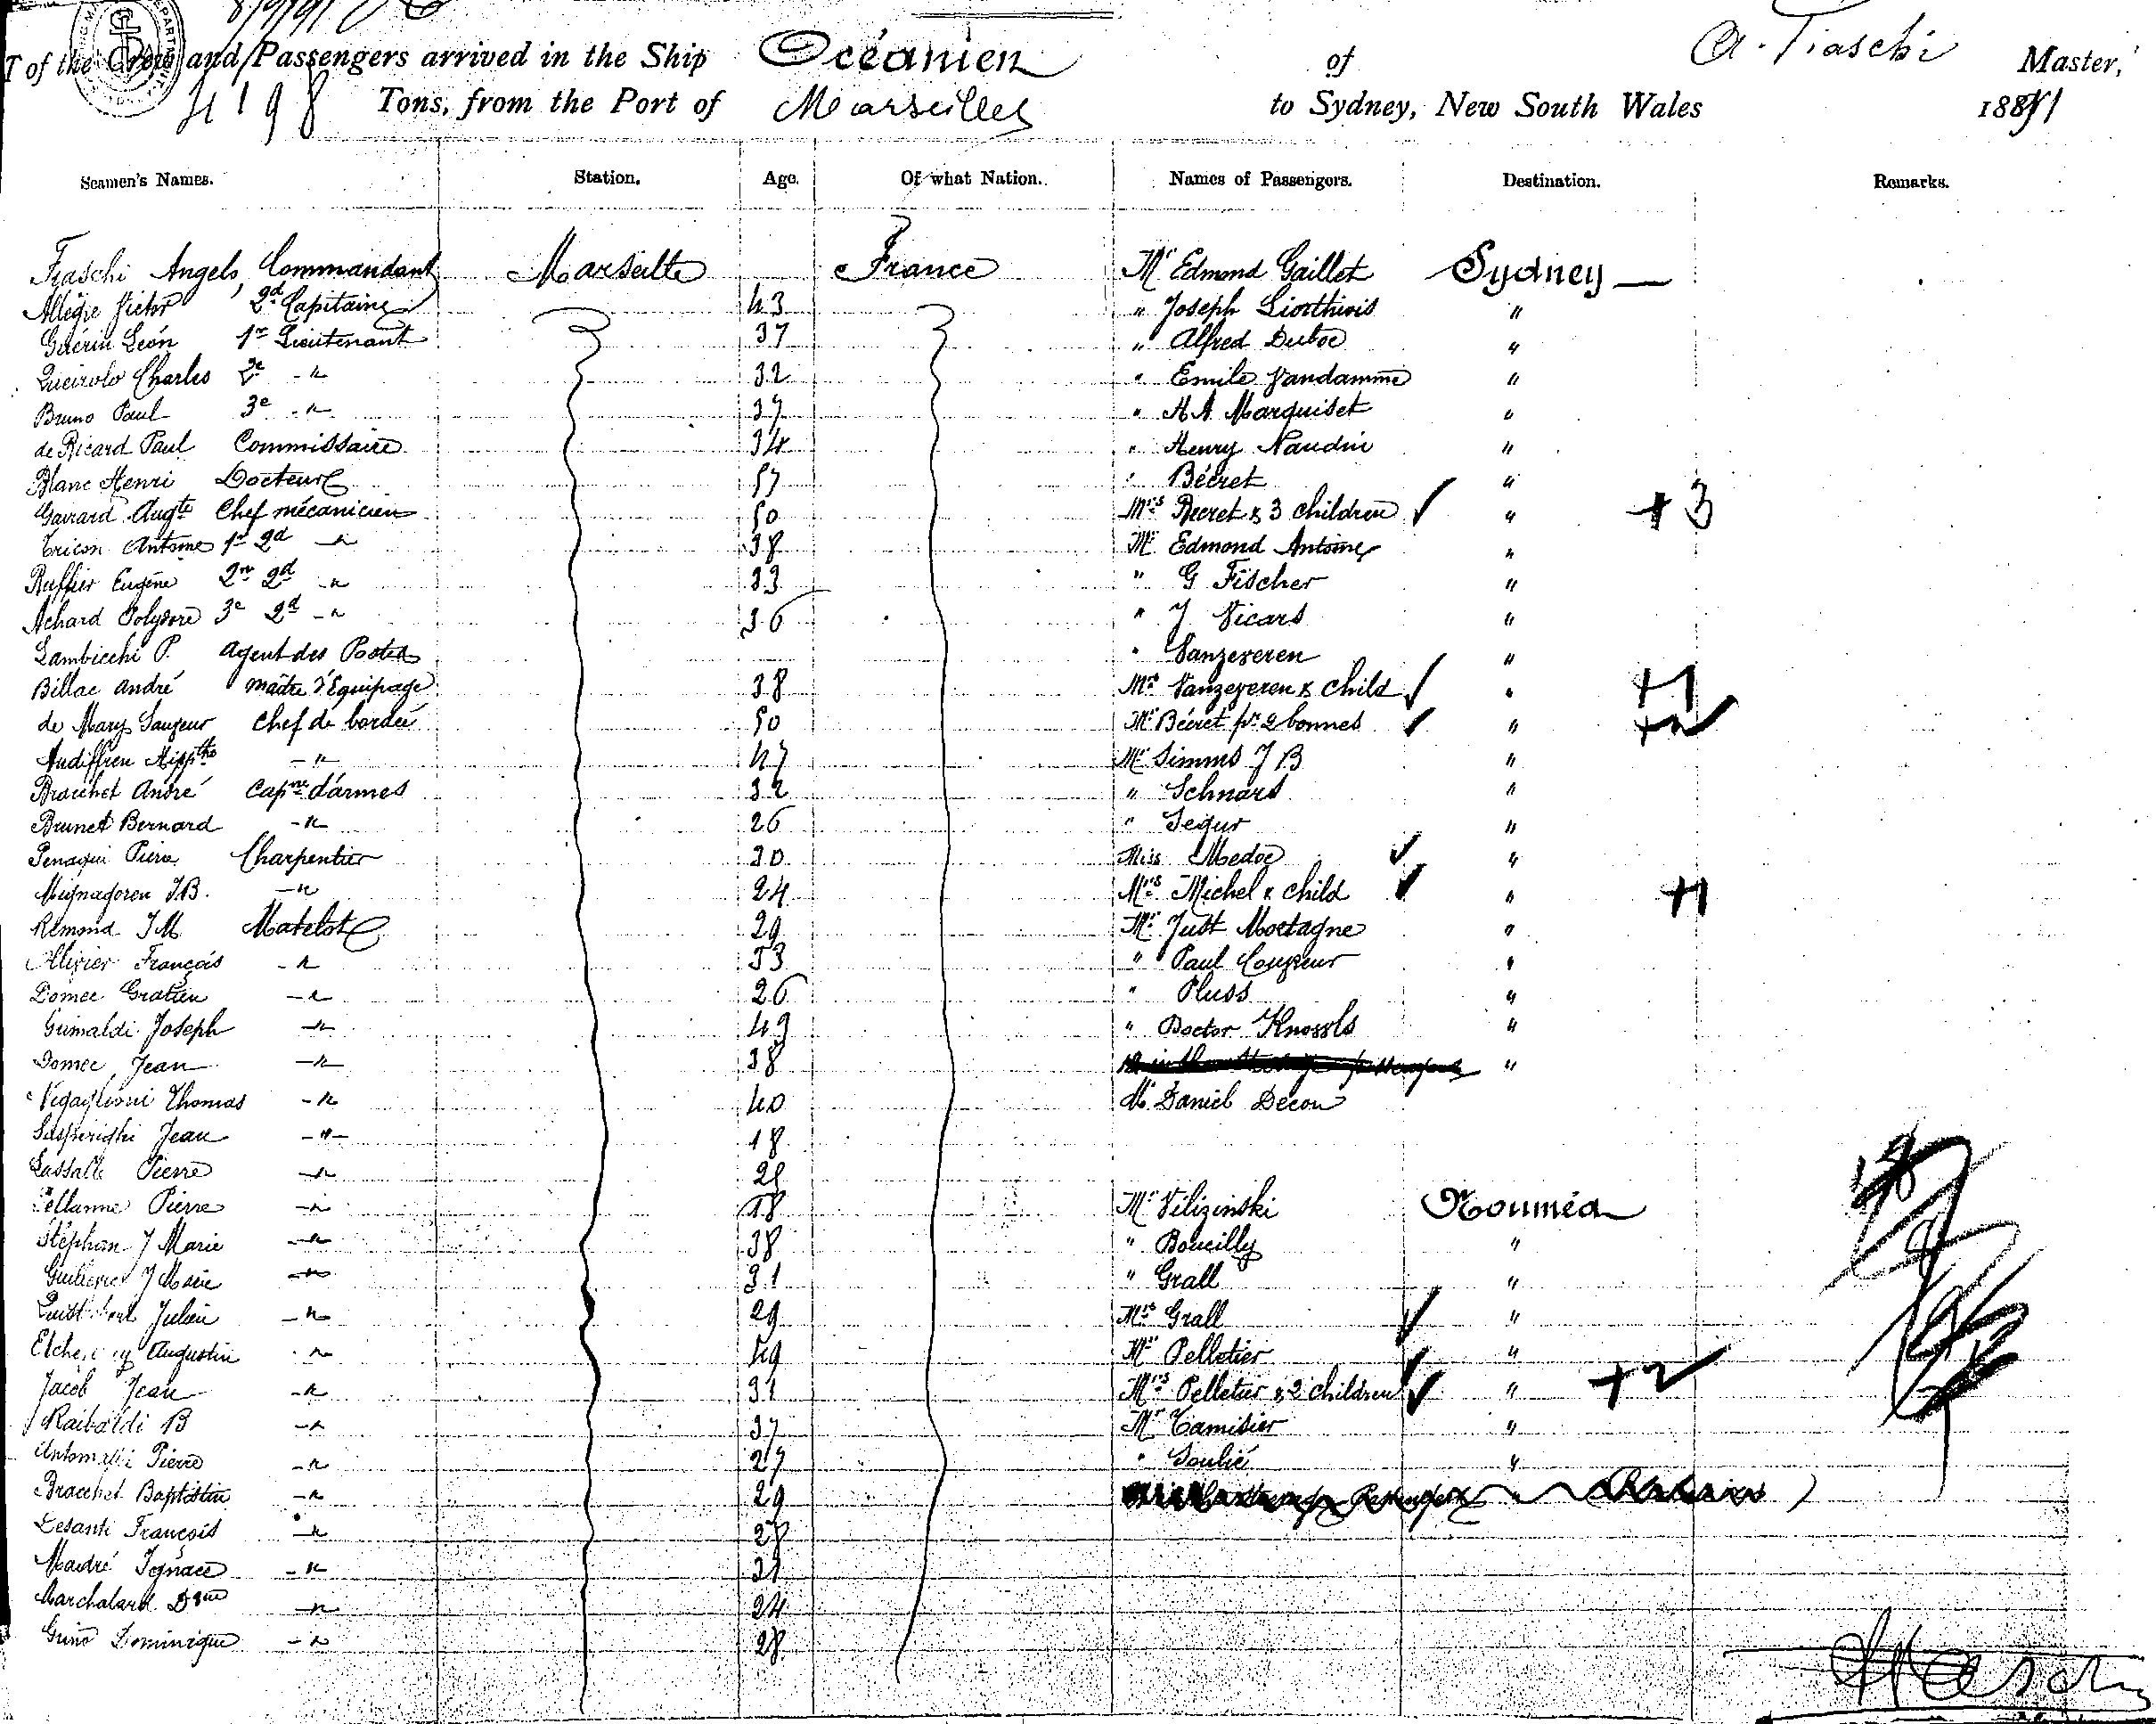 8/9/91
T of the Crew and Passengers arrived in the Ship Océanien of A. Fiaschi Master,
4198 Tons, from the Port of Marseilles to Sydney, New South Wales 1891
Seamen's Names. Station. Age. Of what Nation. Names of Passengers. Destination. Remarks.
Fiaschi Angelo, Commandant Marseille France Mr Edmond Gaillet Sydney
Allègre Victor 2d Capitaine 43 " Joseph Liorthiois "
Guérin Léon 1er Lieutenant 37 " Alfred Duboc "
Queirolo Charles 2e -"- 32 " Emile Vandamme "
Bruno Paul 3e -"- 37 " H A Marquiset "
de Ricard Paul Commissaire 34 " Henry Naudin "
Blanc Henri Docteur 57 " Bécret "
Gavrard Augte Chef mécanicien 50 Mrs Becret & 3 children "  + 3
Antoine 1er 2d -"- 38 Mr Edmond Antoine "
Ruffier Eugène 2me 2d -"- 33 " G Fischer "
Achard Polydore 3e 2d -"- 36 " J Vicars "
Lambicchi P. Agent des Postes " Vanzeveren "
Billac André maître d'Equipage 38 Mrs Vanzeveren & child " +1
de Mary Sauveur chef de bordée 50 Mr Bécret pr 2 bonnes " +2
Audiffren Hippthe -"- 47 Mr Simms J B "
Brachet André Capne d'armes 32 " Schnars "
Brunet Bernard -"- 26 " Segur "
Pierre Charpentier 30 Miss Medoc "
J.B. -"- 24 Mrs Michel & child " +1
Rémond J M Matelot 29 Mr Just Mortagne "
Ollivier François -"- 53 " Paul Couvreur "
Domec Gratien -"- 26 " Pluss "
Grimaldi Joseph -"- 49 " Doctor "
Domec Jean -"- 38 "
Thomas -"- 40 Mr Daniel Decou
Jean -"- 18
Lassalle Pierre -"- 28
Pierre -"- 18 Mr Vilizinski Nouméa
Stéphan J Marie -"- 38 " Boucilly "
J Marie -"- 31 " Grall "
Julien -"- 29 Mrs Grall "
Augustin -"- 49 Mr Pelletier "
Jacob Jean -"- 31 Mrs Pelletier & 2 children " +2
Raibaldi B -"- 37 Mr Tamisier "
Pierre -"- 27 " Soulié "
Bracchet Baptistin -"- 29
Lesanti François -"- 28
Ignace -"- 31
Marchalard -"- 24
Dominique -"- 28